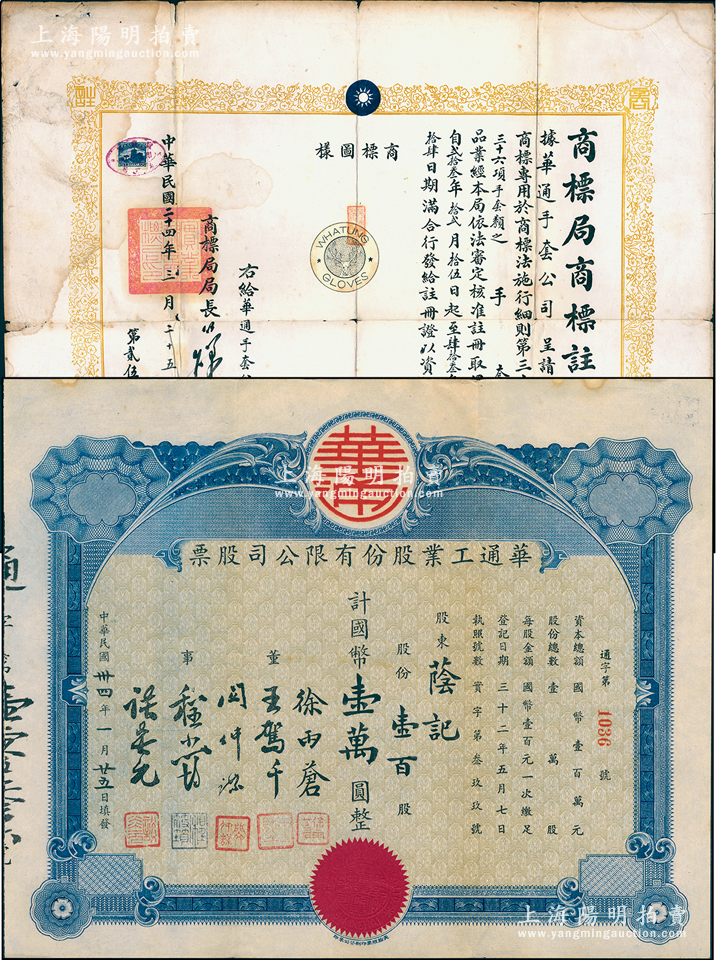 上海陽明拍賣
www.yangmingauction.com
商標局商標註
據華通手套公司呈請
商標專用於商標法施行細則第三
三十六項手套類之 手
品業經本局依法審定核准註冊取
自貳拾叁年拾貳月拾伍日起至肆拾叁
拾肆日期滿合行發給註冊證以資
商標圖樣
WHATUNG
GLOVES
右給華通手套
商標局局長
中華民國二十四年三月二十五
第貳伍
上海陽明拍賣
www.yangmingauction.com
華通工業股份有限公司股票
通字第 1036 號
資本總額國幣壹百萬元
股份總數壹萬股
每股金額國幣壹百元一次繳足
登記日期三十二年五月七日
執照號數實字第叁玖玖號
股東 蔭記
股份 壹百 股
計國幣壹萬圓整
董事
徐雨蒼
王駕千
中華民國卅四年一月廿五日填發
上海陽明拍賣
www.yangmingauction.com